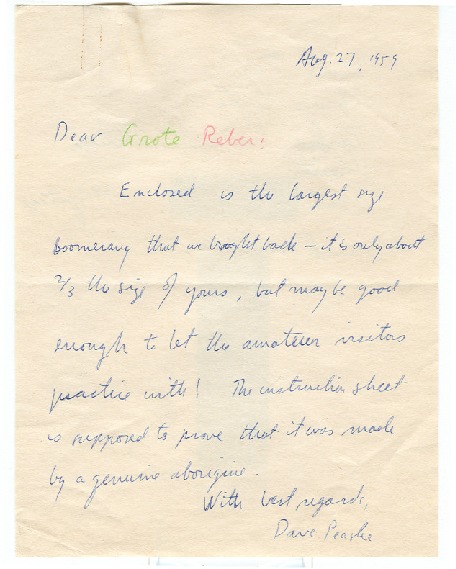 Aug. 27, 1959
Dear Grote Reber:
Enclosed is the largest size
boomerang that we brought back – it is only about
2/3 the size of yours, but may be good
enough to let the amateur visitors
practice with! The instruction sheet
is supposed to prove that it was made
by a genuine aborigine.
With best regards,
Dave